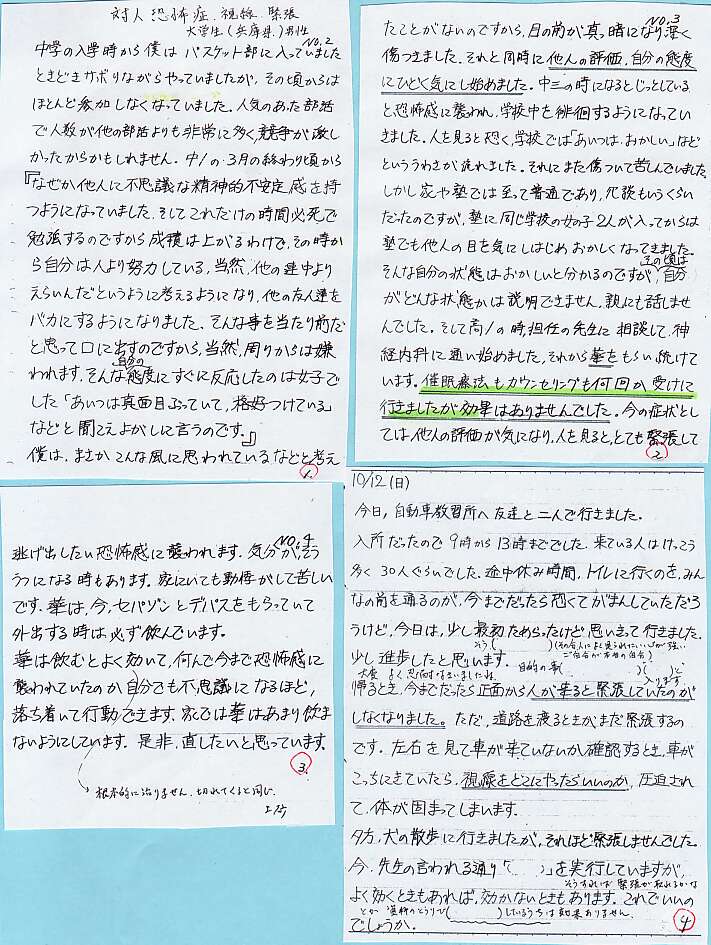 対人恐怖症、視線、緊張
大学生(兵庫県)男性
NO.2
中学の入学時から僕はバスケット部に入っていました
ときどきサボリながらやっていましたが、その頃からは
ほとんど参加しなくなっていました。人気のあった部活
で人数が他の部活よりも非常に多く、競争が激し
かったからかもしれません。中1の3月の終わり頃から
『なぜか他人に不思議な精神的不安定感を持
つようになっていました。そしてこれだけの時間必死で
勉強するのですから成積は上がるわけで、その時か
ら自分は人より努力している、当然、他の連中より
えらいんだというように考えるようになり、他の友人達を
バカにするようになりました。そんな事を当たり前だ
と思って口に出すのですから、当然、周りからは嫌
われます。そんな自分の態度にすぐに反応したのは女子で
した「あいつは真面目ぶっていて、格好つけている」
などと聞こえよがしに言うのです。』
僕は、まさかこんな風に思われているなどと考え
1.
NO.3
たことがないのですから、目の前が真暗になり深く
傷つきました。それと同時に他人の評価、自分の態度
にひどく気にし始めました。中三の時になるとじっとしている
と恐怖感に襲われ、学校中を徘徊するようになってい
きました。人を見ると恐く、学校では「あいつは、おかしい」など
というウわさが流れました。それにまた傷ついて苦しんでいました。
しかし家や塾では至って普通であり、冗談もいうくらい
だったのですが、塾に同じ学校の女の子2人が入ってからは
塾でも他人の目を気にしはじめ、おかしくなってきました。
そんな自分の状態はおかしいと分かるのですが、その頃は自分
がどんな状態かは説明できません。親にも話しませ
んでした。そして高1の時、担任の先生に相談して、神
経内科に通い始めました。それから薬をもらい続けて
います。催眠療法もカウンセリングも何回か受けに
行きましたが効果はありませんでした。今の症状とし
ては、他人の評価が気になり、人を見ると、とても緊張して
2
NO.4
逃げ出したい恐怖感に襲われます。気分がそう
うつになる時もあります。家にいても動悸がして苦しい
です。薬は、今、セパゾンとデパスをもらっていて
外出する時は必ず飲んでいます。
薬は飲むとよく効いて、何んで今まで恐怖感に
襲われていたのか自分でも不思議になるほど、
落ち着いて行動できます。家では薬はあまり飲ま
ないようにしています。是非、直したいと思っています。
3.
根本的に治りません、切れてくると同じ。
10/12(日)
今日、自動車教習所へ友達と二人で行きました。
入所だったので9時から13時まででした。来ている人はけっこう
多く30人ぐらいでした。途中休み時間、トイレに行くのを、みん
なの前を通るのが、今までだったら恐くてがまんしていただろ
うけど、今日は、少し最初ためらったけど思いきって行きました。
少し進歩したと思います。
帰るとき、今までだったら正面から人が来ると緊張していたのが
しなくなりました。ただ、道路を渡るときがまだ緊張するの
です。左右を見て車が来ていないか確認するとき、車が
こっちにきていたら、視線をどこにやったらいいのか、圧迫され
て、体が固まってしまいます。
夕方、犬の散歩に行きましたが、それほど緊張しませんでした。
今、先生の言われる通り「　　」を実行していますが、
よく効くときもあれば、効かないときもあります。これでいいの
でしょうか。
4